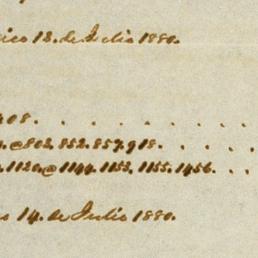 ico 12. de Julio 1880.
408. . . . . . .
@ 802. 852. 857. 918. . . . .
1120. @ 1144. 1153. 1155. 1456. . .
14. de Julio 1880.